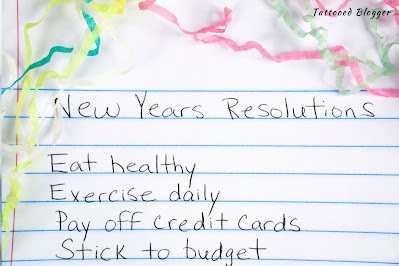 Tattooed Blogger
New Years Resolutions
Eat healthy
Exercise daily
Pay off credit cards
Stick to budget